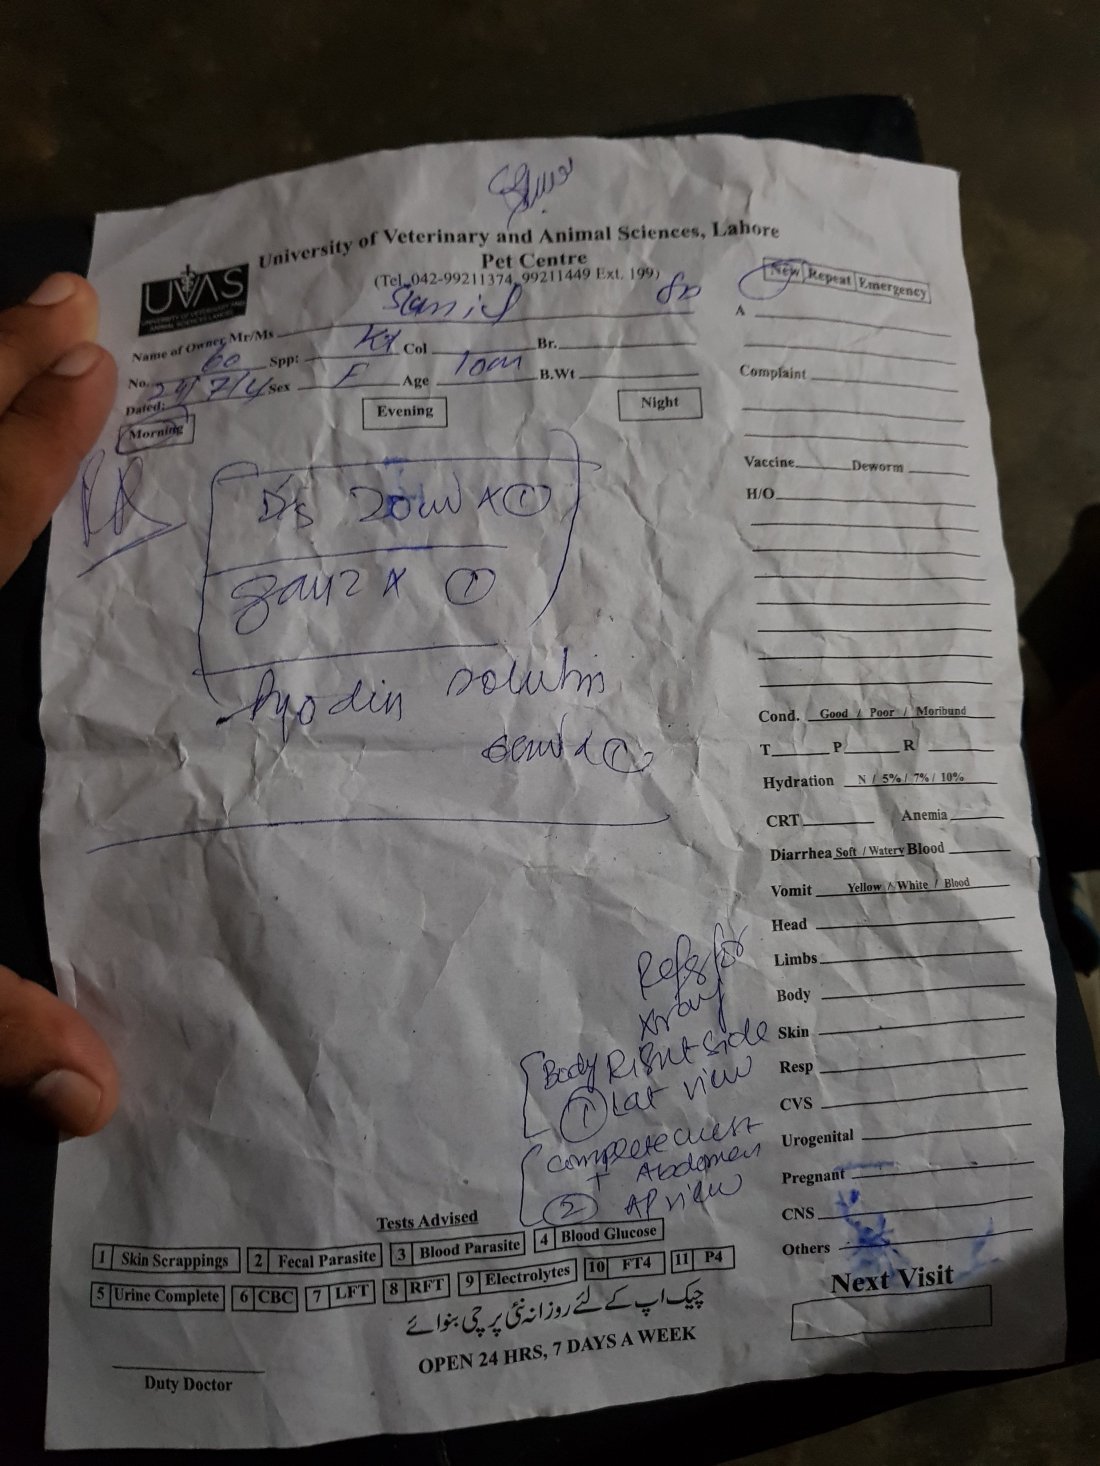 University of Veterinary and Animal Sciences, Lahore
Pet Centre
(Tel. 042-99211374, 99211449 Ext. 199)
UVAS
UNIVERSITY OF VETERINARY AND
ANIMAL SCIENCES LAHORE
New Repeat Emergency
Name of Owner Mr/Ms
No. 60 Spp: Col Br.
Dated: Sex F Age B.Wt
Morning Evening Night
A
Complaint
Vaccine Deworm
H/O
D/s 20 x 1
x 1
Pyodin solution
1
Cond. Good / Poor / Moribund
T P R
Hydration N / 5% / 7% / 10%
CRT Anemia
Diarrhea Soft / Watery Blood
Vomit Yellow / White / Blood
Head
Limbs
Body
Skin
Resp
CVS
Urogenital
Pregnant
CNS
Others
Next Visit
Refer for
xray
Body Right side
1 Lat view
complete chest
+ Abdomen
2 AP view
Tests Advised
1 Skin Scrappings 2 Fecal Parasite 3 Blood Parasite 4 Blood Glucose
5 Urine Complete 6 CBC 7 LFT 8 RFT 9 Electrolytes 10 FT4 11 P4
چیک اپ کے لئے روزانہ نئی پرچی بنوائے
OPEN 24 HRS, 7 DAYS A WEEK
Duty Doctor